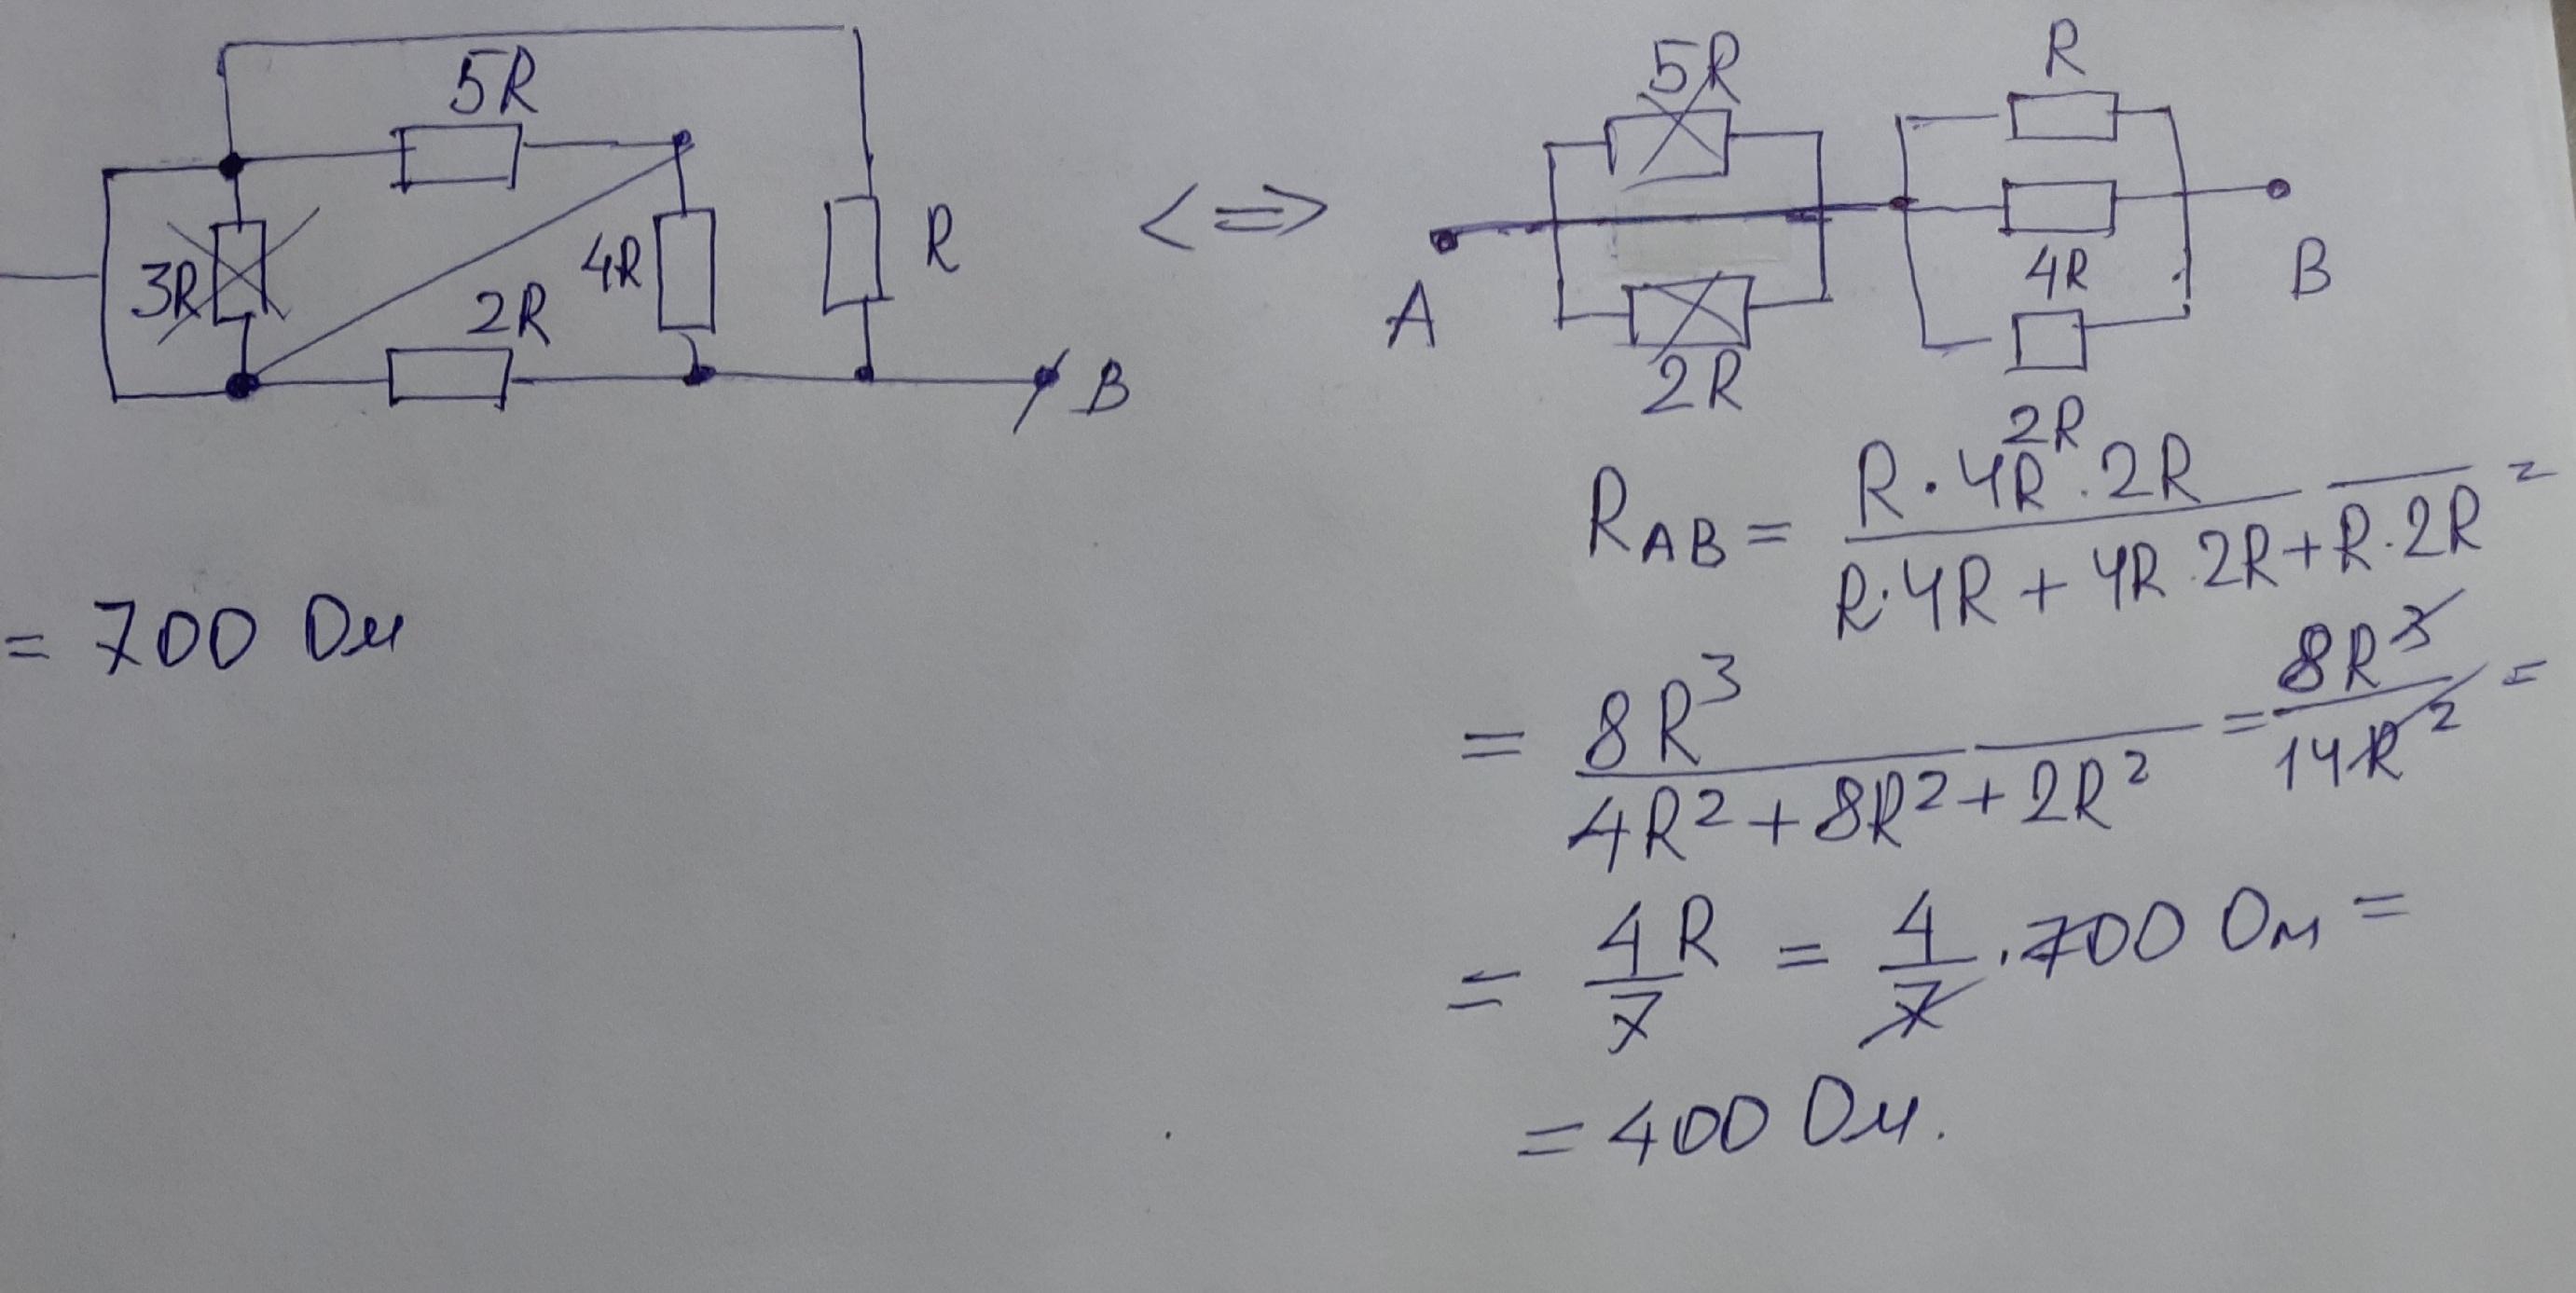 5R
3R
4R
R
2R
B
= 700 Ом
<=>
5R
R
A
4R
B
2R
2R
R_AB = R·4R·2R / (R·4R + 4R·2R + R·2R) =
= 8R³ / (4R² + 8R² + 2R²) = 8R³ / 14R² =
= 4R/7 = 4/7 · 700 Ом =
= 400 Ом.